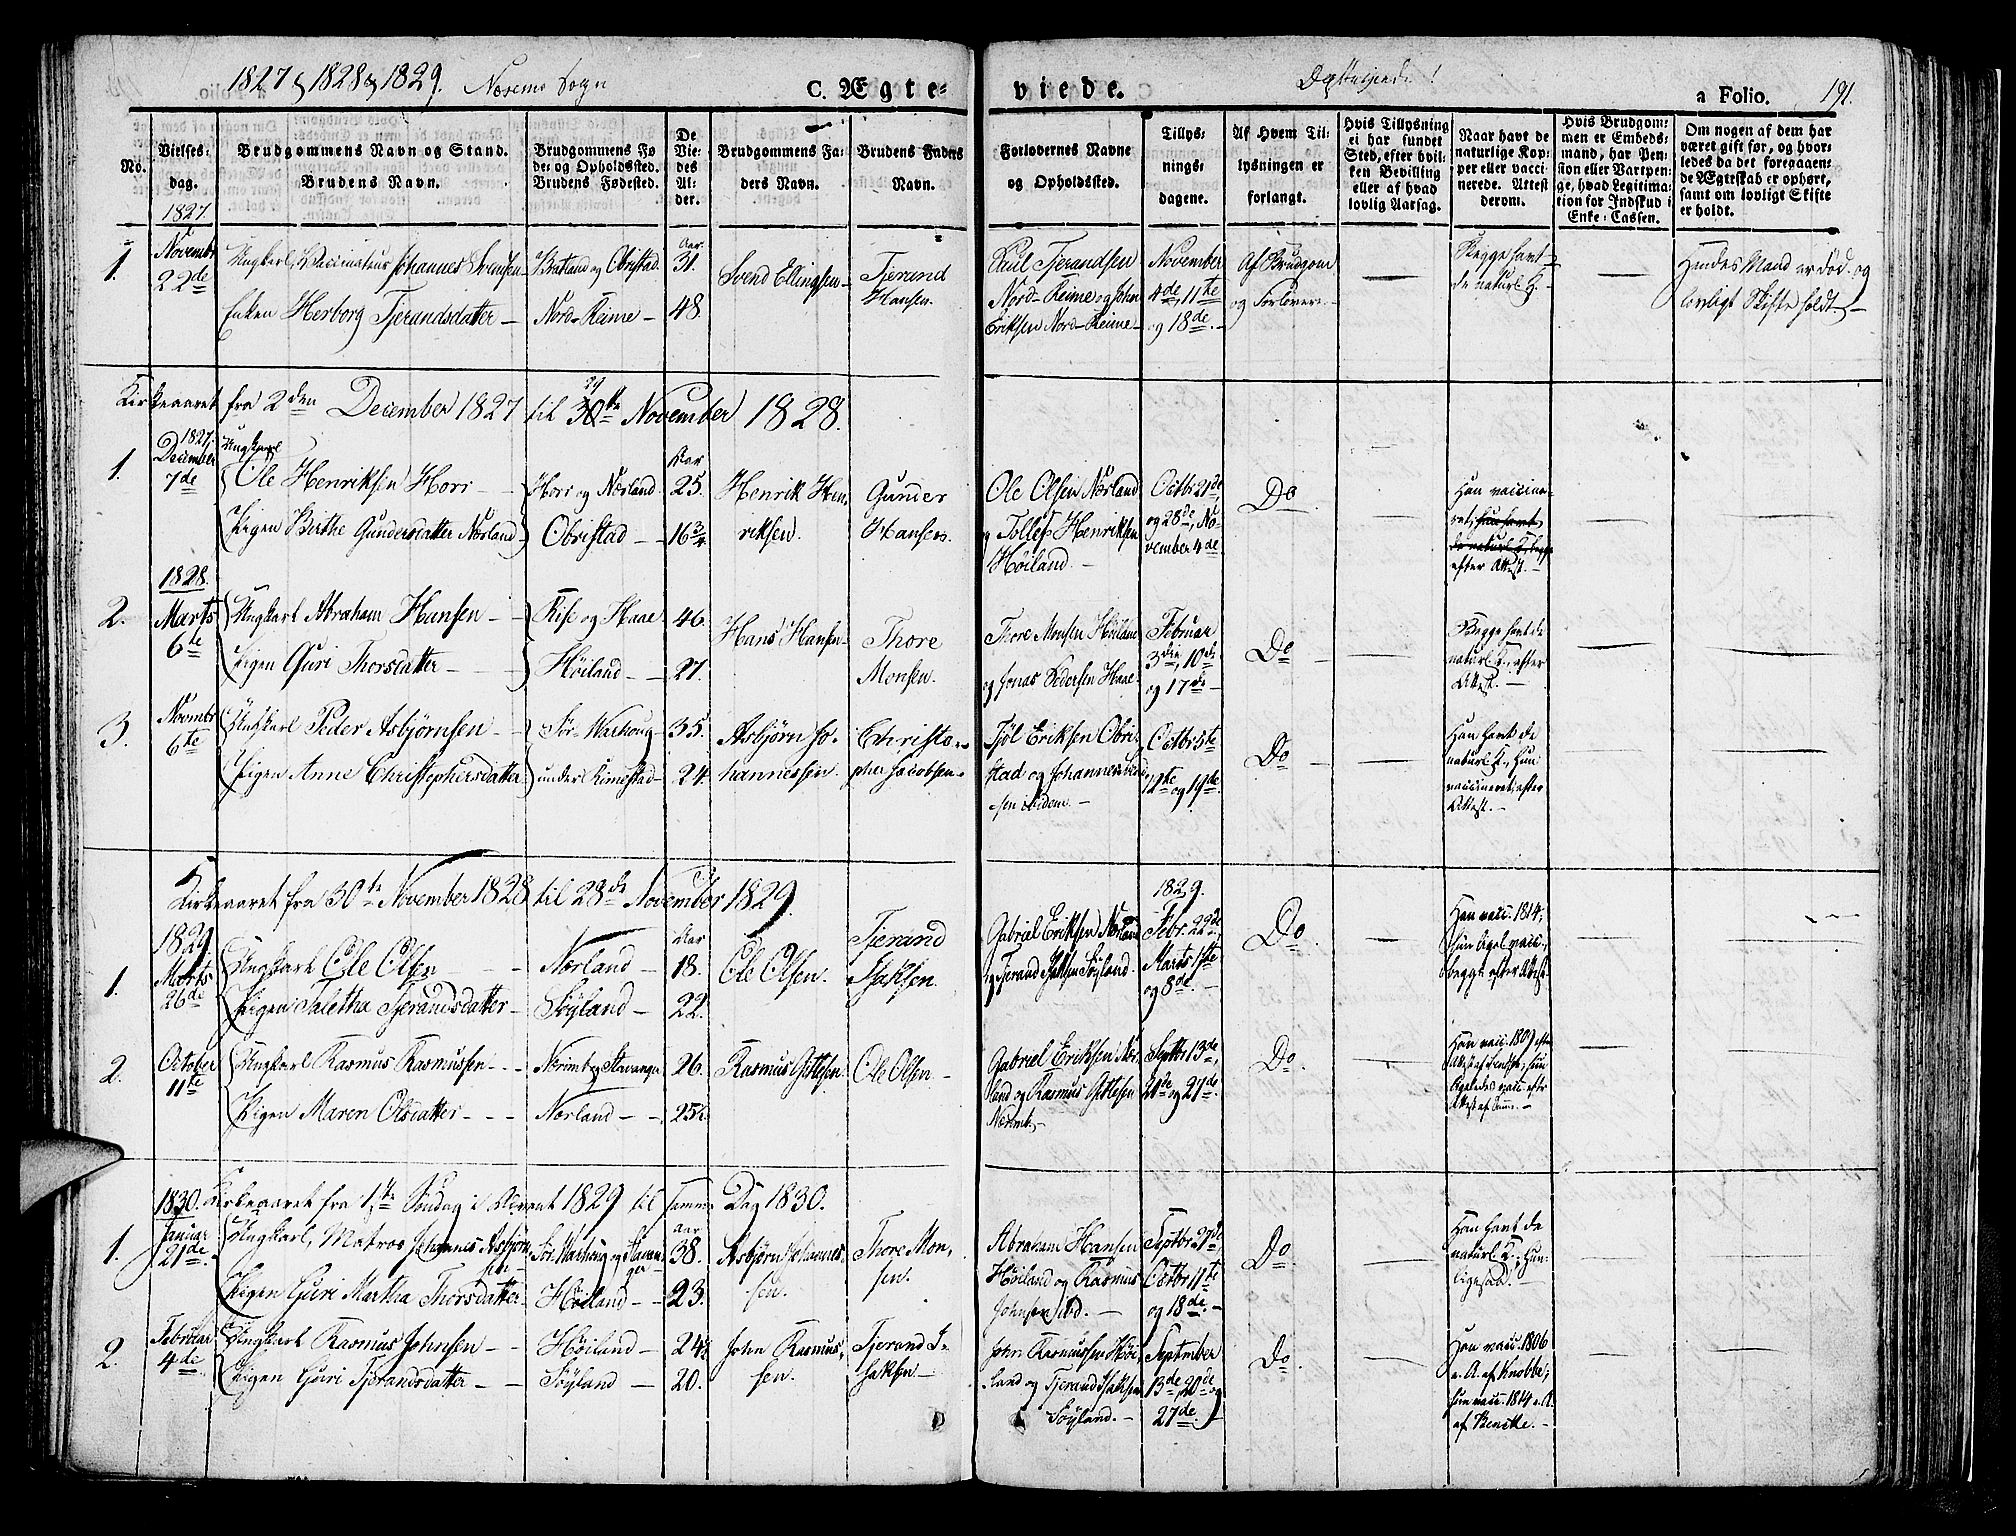 1827 & 1828 & 1829. Næremo Sogn
C. Ægte-
viede.
a Folio. 191.
No.
Vielses-
dag.
Brudgommens Navn og Stand.
Brudens Navn.
Brudgommens Fø
de- og Opholdssted.
Brudens Fødested.
De
Vie-
des
Al-
der.
Brudgommens Fa-
ders Navn.
Brudens Faders
Navn.
Forlovernes Navne
og Opholdssted.
Tillys-
nings-
dagene.
Af Hvem Til-
lysningen er
forlangt.
Hvis Tillysning
ei har fundet
Sted, efter hvil-
ken Bevilling
eller af hvad
lovlig Aarsag.
Naar havt de
naturlige Kop-
per eller vacci-
nerede. Attest
derom.
Hvis Brudgom-
men er Embeds-
mand, har Pen-
sion eller Vartpen-
ge, hvad Legitima-
tion for Indskud i
Enke-Cassen.
Om nogen af dem har
været gift før, og hvor-
ledes da det foregaaen-
de Ægteskab er ophørt,
samt om lovligt Skifte
er holdt.
1827.
1. Novembr
22de
Ungkarl, Vaccinateur Johannes Svensen
Enken Herborg Tjerandsdatter
Bratland og Obristad
Nord-Reime
Aar
31.
48.
Svend Ellingsen
Tjerand
Hansen.
Poul Tjerandsen
Nord-Reime og John
Eriksen Nord-Reime
November
4de, 11te
og 18de
Af Brudgom
og Forlovere.
Begge havt
de naturl. K.
Hendes Mand er død og
lovligt Skifte holdt
Kirkeaaret fra 2den December 1827 til 30te November 1828.
29
1. 1827.
December
7de
Ungkarl
Ole Henriksen Hori
Pigen Berthe Gundersdatter Nørland
Hori og Nørland
Obristad
Aar
25.
16 3/4
Henrik Hen-
riksen.
Gunder
Hansen.
Ole Olsen Nørland
og Tollef Henriksen
Høiland.
Octbr 21de,
og 28de, No-
vember 4de
Do
Han vaccine-
ret, hun havt
de naturl. K. begge
efter Attest.
1828.
2. Marts
6te
Ungkarl Abraham Hansen
Pigen Guri Thorsdatter
Riise og Haae
Høiland
46.
27.
Hans Hansen
Thore
Monsen.
Thore Monsen Høiland
og Jonas Pedersen Haae
Februar
3die, 10de
og 17de
Do
Begge havt de
naturl. K., efter
Attest.
3. Novmbr
6te
Ungkarl Peder Asbjørnsen
Pigen Anne Christophersdatter
Sør-Warhoug
under Kirnestad
35.
24.
Asbjørn Jo-
hannessen.
Christo-
pher Jacobsen
Tjøl Eriksen Obri-
stad og Johannes
sen ibidem.
Octbr 5te
12te og 19de.
Do
Han havt de
naturl. K., Hun
vaccineret, efter
Attest.
Kirkeaaret fra 30te November 1828 til 28de November 1829.
1829
1. Marts
26de
Ungkarl Ole Olsen
Pigen Taletha Tjerandsdatter
Nørland
Søyland
Aar
18.
22.
Ole Olsen.
Tjerand
Isaksen.
Gabriel Eriksen Nørland
og Tjerand Isaksen Søyland.
1829.
Febr. 22de,
Marts 1ste
og 8de.
Do
Han vacc. 1814;
hun ligel. vacc.,
begge efter Attest.
2. October
11te
Ungkarl Rasmus Rasmussen
Pigen Maren Olsdatter
Nærimb og Stavanger
Nørland
26.
25 1/2
Rasmus Gittlesen
Ole Olsen
Gabriel Eriksen Nør-
land og Rasmus Gittlesen
Næremb.
Septbr 13de,
20de og 27de.
Do
Han vacc. 1809 efter
Attest af Bentsen; hun
ligeledes vacc. efter
Attest af
1830. Kirkeaaret fra 1ste Søndag i Advent 1829 til samme Dag 1830.
1. Januar
21de
Ungkarl, Matros Johannes Asbjørn-
sen
Pigen Guri Martha Thorsdatter
Sør-Warhoug og Stavan-
ger
Høiland
aar
38.
23.
Asbjørn Johannes-
sen.
Thore Mon-
sen.
Abraham Hansen
Høiland og Rasmus
Johnsen ibid.
Septbr. 27de,
Octbr 11te
og 18de.
Do
Han havt de
naturl. K.; Hun
ligesaa.
2. Februar
4de
Ungkarl Rasmus Johnsen
Pigen Guri Tjerandsdatter
Høiland
Søyland
24 1/2
20.
John Rasmus-
sen.
Tjerand I-
saksen
John Rasmussen Høi-
land og Tjerand Isaksen
Søyland.
September
13de, 20de og
27de.
Do
Han vacc. 1806
e. A. af Knobbe;
hun vacc. 1814 e. A.
af Benekke.